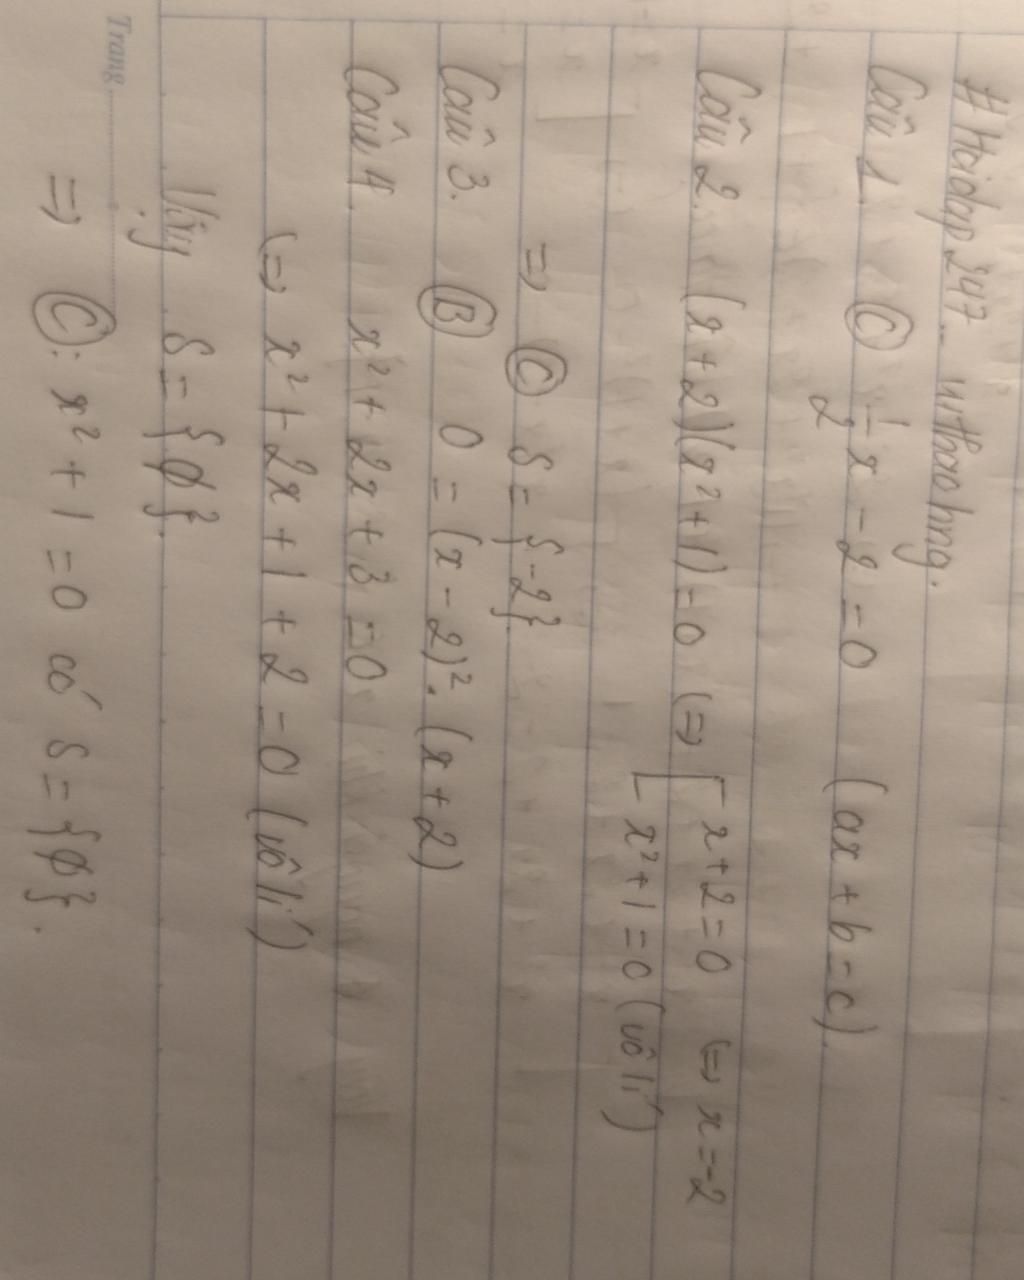 # Hoidap247_nthaohng.
Câu 1. Ⓒ 1/2 x - 2 = 0 (ax + b = c).
Câu 2. (x + 2)(x² + 1) = 0 (=> [ x + 2 = 0 (=> x = -2
x² + 1 = 0 (vô lí)
=> Ⓒ S = {-2}.
Câu 3. Ⓑ 0 = (x - 2)². (x + 2)
Câu 4. x² + 2x + 3 = 0
(=> x² + 2x + 1 + 2 = 0 (vô lí)
Vậy S = {∅}.
Trang
=> Ⓒ: x² + 1 = 0 có S = {∅}.